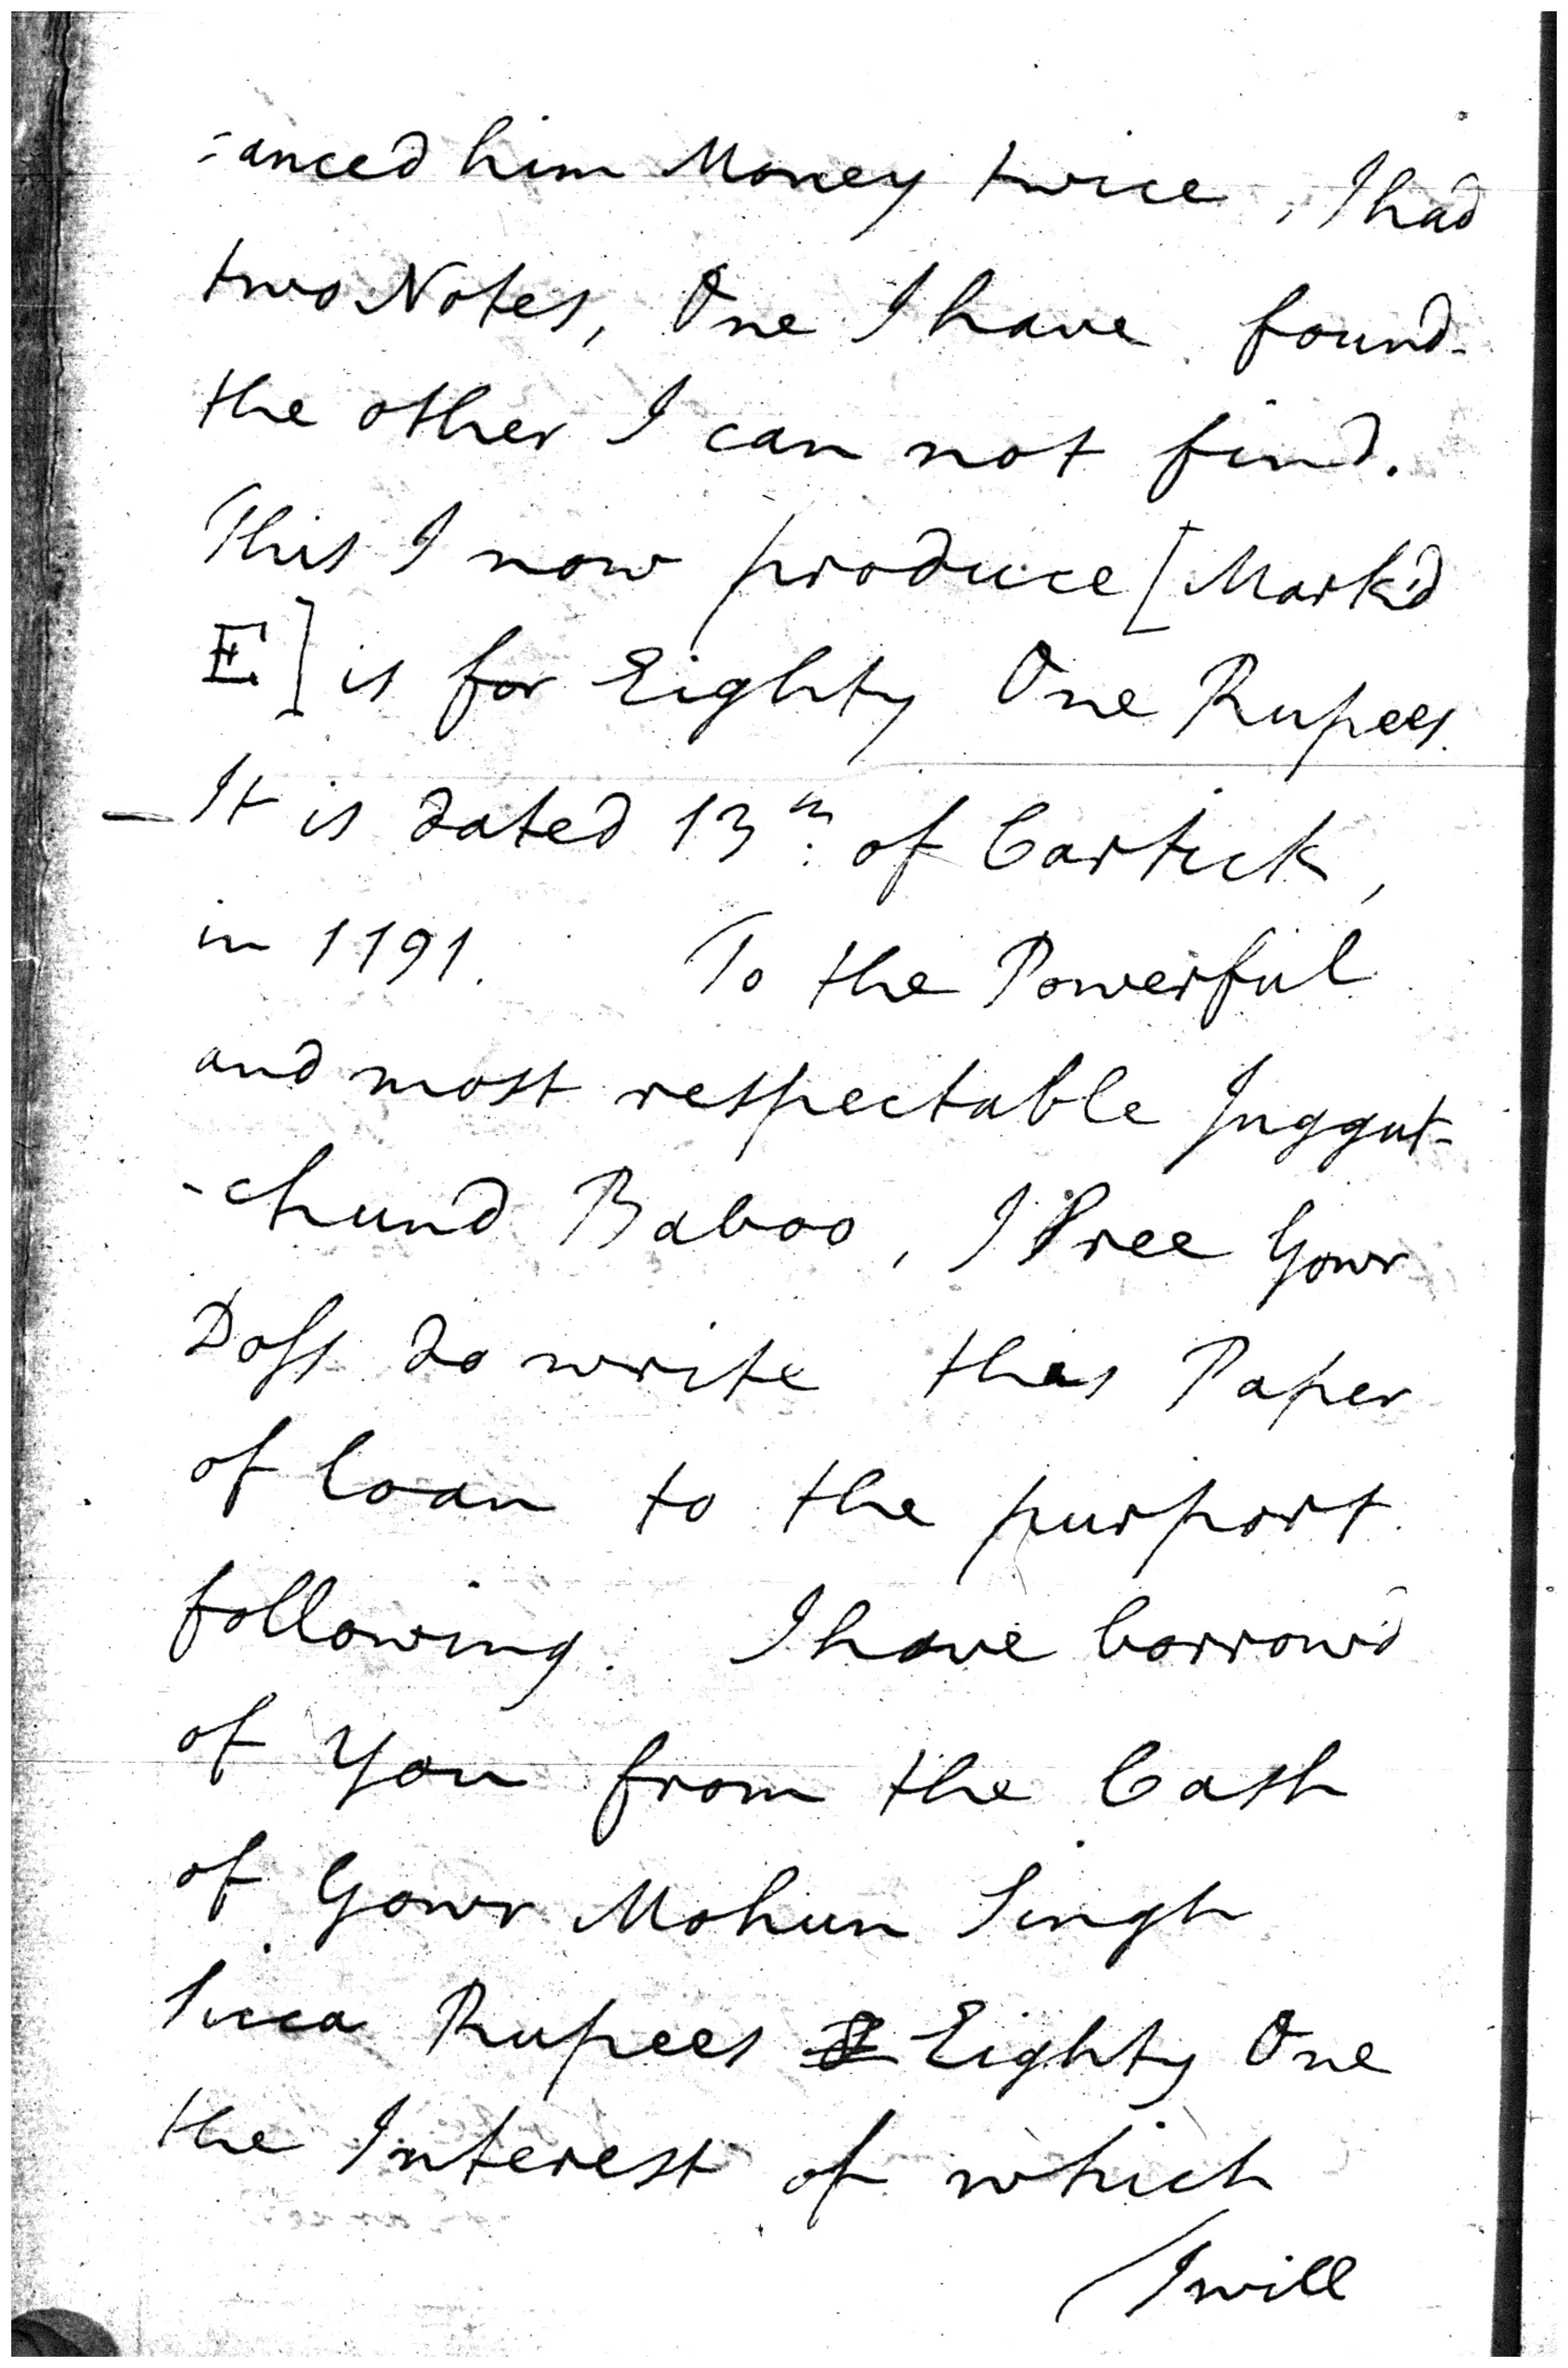 -anced him Money twice, I had
two Notes, One I have found
the other I can not find.
This I now produce [Mark'd
E] is for Eighty One Rupees.
— It is dated 13th. of Cartick,
in 1191. To the Powerful
and most respectable Juggut-
-chund Baboo, I Sree Gowr
Doss do write this Paper
of loan to the purport
following. I have borrow'd
of You from the Cash
of Gowr Mohun Singh
Sicca Rupees Eighty One
the Interest of which
I will